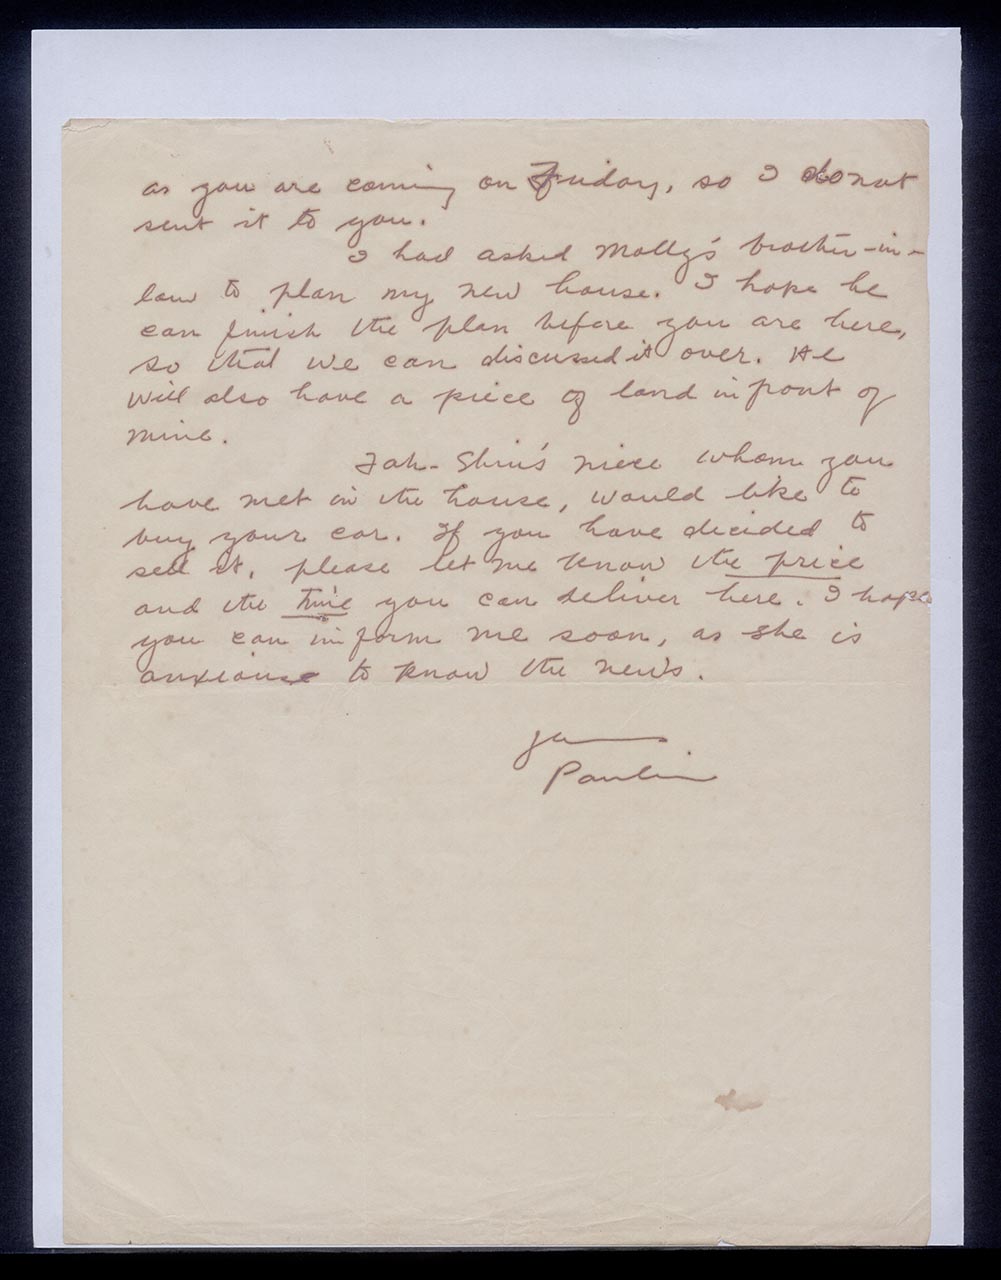 as you are coming on Friday, so I do not
sent it to you.
I had asked Molly's brother-in-
law to plan my new house. I hope he
can finish the plan before you are here,
so that we can discussed it over. He
will also have a piece of land in front of
mine.
niece whom you
have met in the house, would like to
buy your car. If you have decided to
sell it, please let me know the price
and the time you can deliver here. I hope
you can inform me soon, as she is
anxious to know the news.